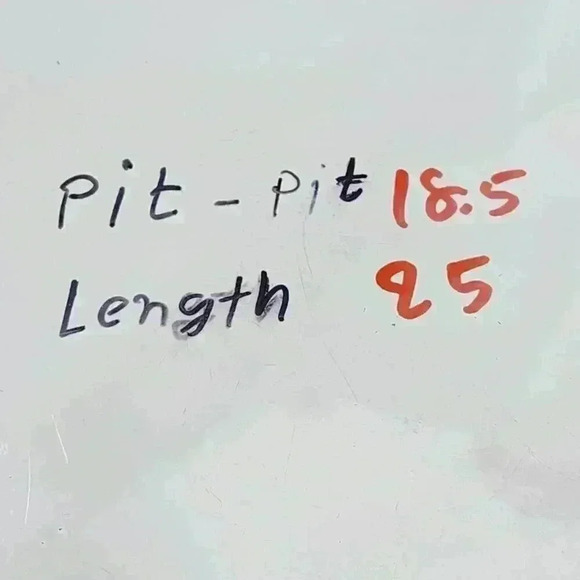 Pit - Pit 18.5
Length 25